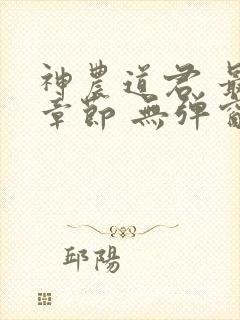 神農道君 最
章節 無彈窗
邱陽